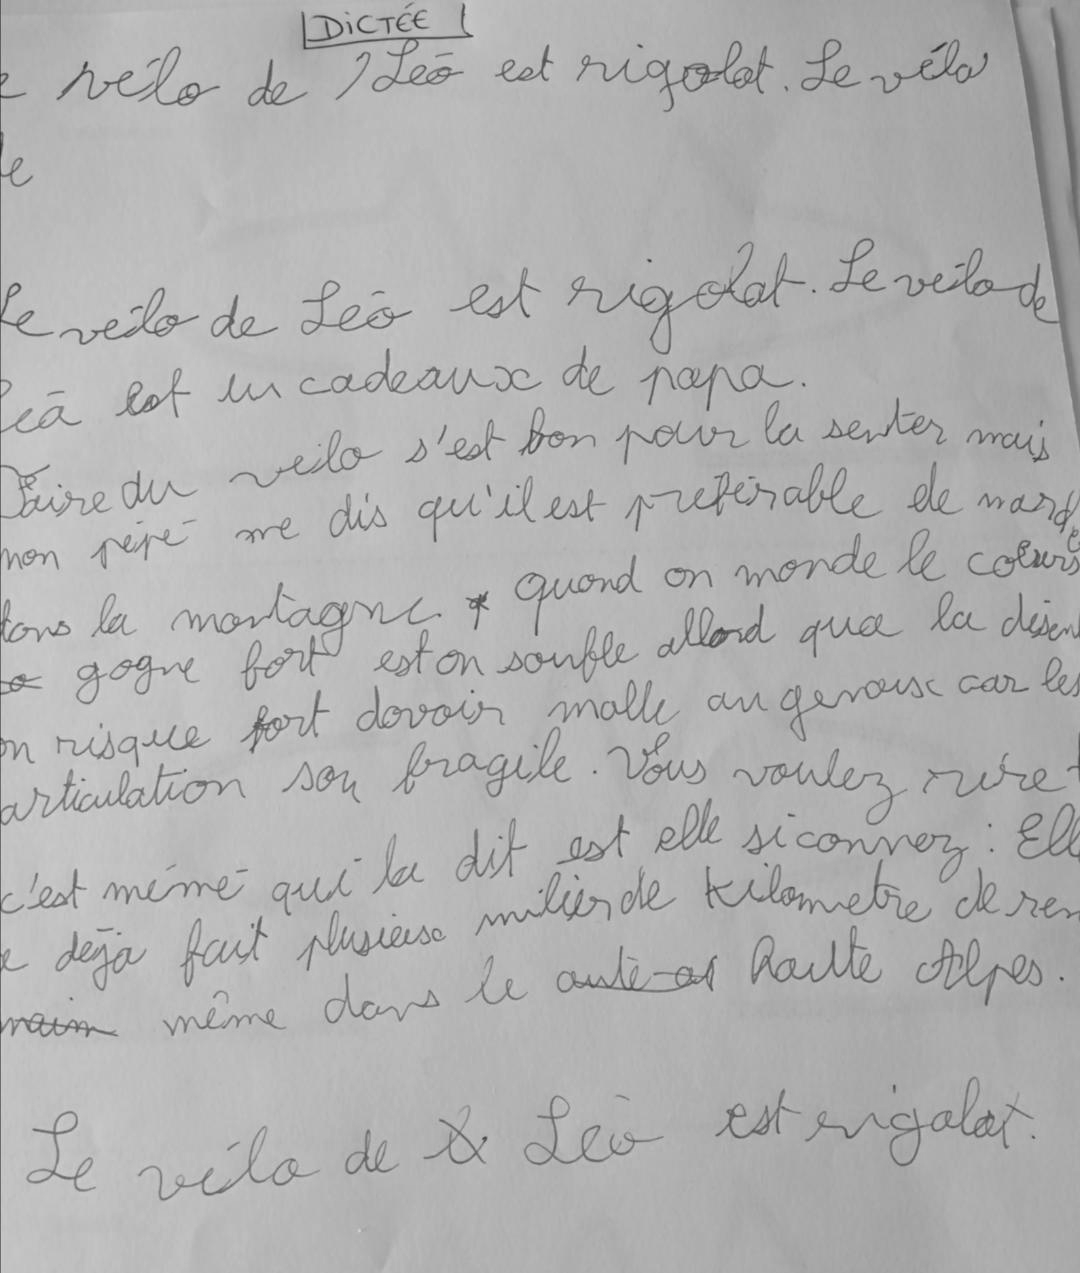 DICTÉE 1
vélo de Léo est rigolot. Le vélo
Le vélo de Léo est rigolot. Le vélo de
Léo est un cadeaux de papa.
Faire du vélo s'est bon pour la senter mais
mon pépé me dis qu'il est préférable de
la montagne. quand on monde le coeurs
gogne fort est on soufle allord que la désen
on risque fort dovoir malle au genoux car les
articulation son fragile. Vous voulez rire
c'est mémé qui la dit est elle si connez : Elle
a déja fait plusieus milier de kilometre de
même dans le Haute Alpes.
Le vélo de Léo est rigolot.